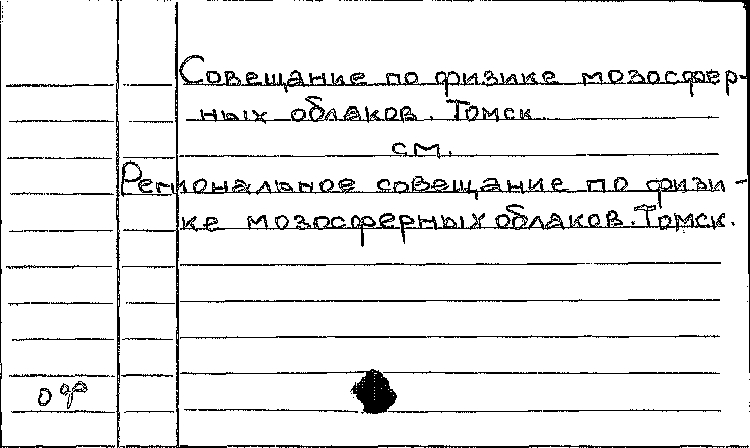 Совещание по физике мозосфер-
ных облаков. Томск
см.
Региональное совещание по физи-
ке мозосферных облаков. Томск.